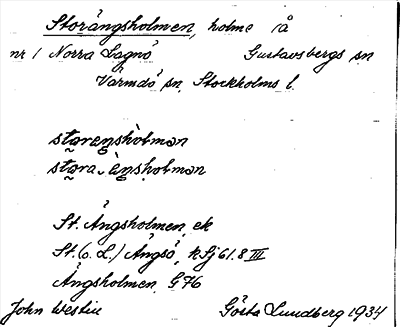 Storängsholmen, holme iå
nr 1 Norra Lagnö Gustavsbergs sn
Värmdö sn, Stockholms l.
storangsholman
stora ängsholman
St. Ängsholmen ek
St. (o. L.) Ängsö, kSj 61.8 III
Ängsholmen G76
John Westin Gösta Lundberg 1934